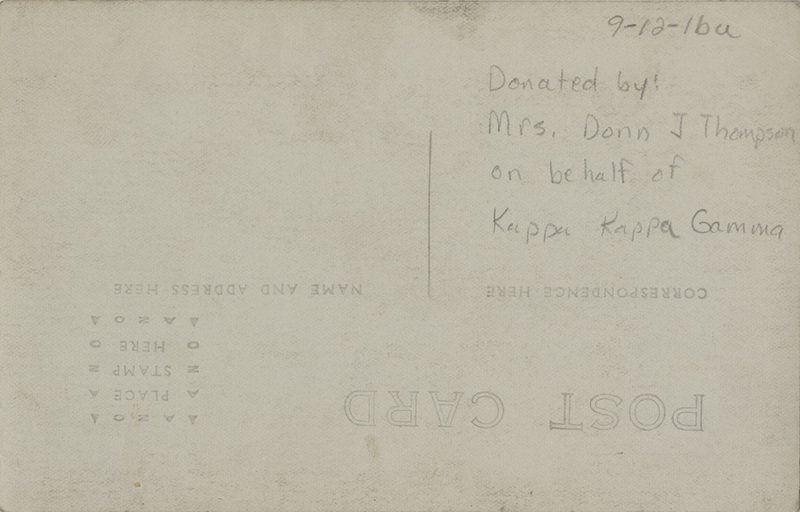 9-12-16u
Donated by:
Mrs. Donn J Thompson
on behalf of
Kappa Kappa Gamma
CORRESPONDENCE HERE
NAME AND ADDRESS HERE
POST CARD
A Z O A
PLACE
STAMP
HERE
A Z O A